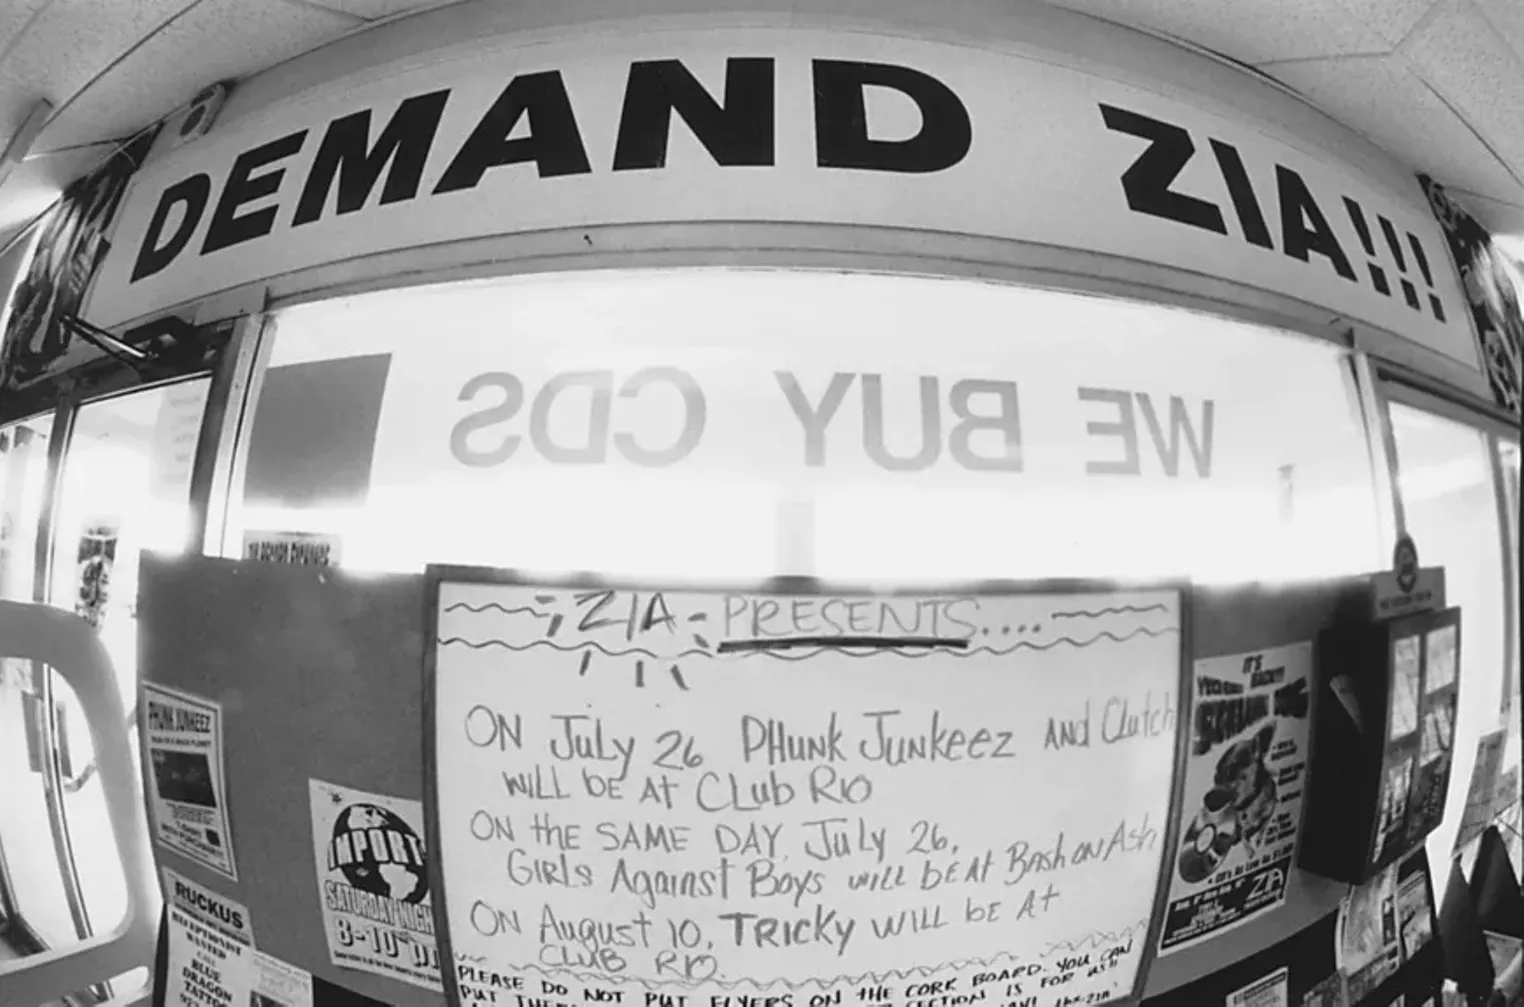 DEMAND ZIA!!!
WE BUY CDS
ZIA PRESENTS....
ON July 26 PHunk Junkeez AND Clutch
WILL BE AT CLub RIO
ON tHe SAME DAY, July 26,
GIRLS Against Boys WILL bE At Bash ON Ash
ON August 10, TRICKy WILL bE At
CLUB RIO.
PLEASE DO NOT PUT FLYERS ON tHE CORK BOARD. YOU CAN
PUT THE
SECTION IS FOR
PHUNK JUNKEEZ
IMPORT
SATURDAY NIGH
8-10
RUCKUS
RECEPTIONIST
WANTED
BLUE
DRAGON
TATTOO
IT'S
BACK!!!
ZIA